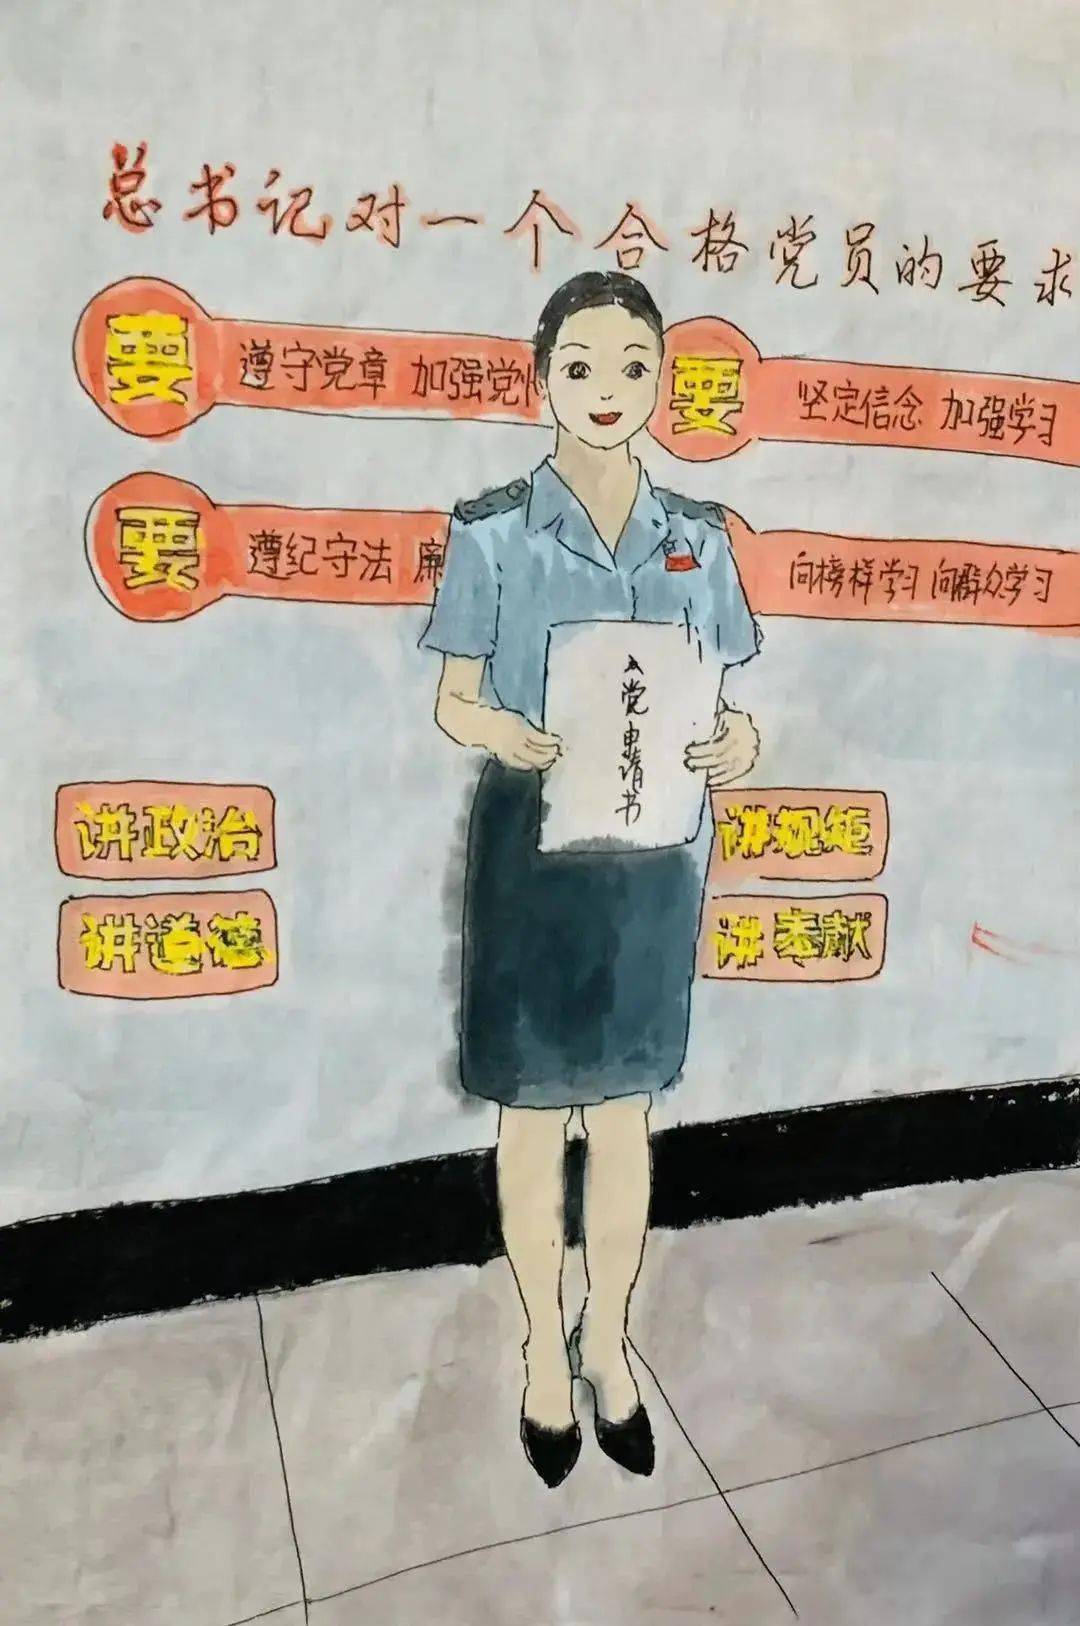 总书记对一个合格党员的要求
要 遵守党章 加强党
要 坚定信念 加强学习
要 遵纪守法 廉
向榜样学习 向群众学习
入党申请书
讲政治
讲规矩
讲道德
讲奉献